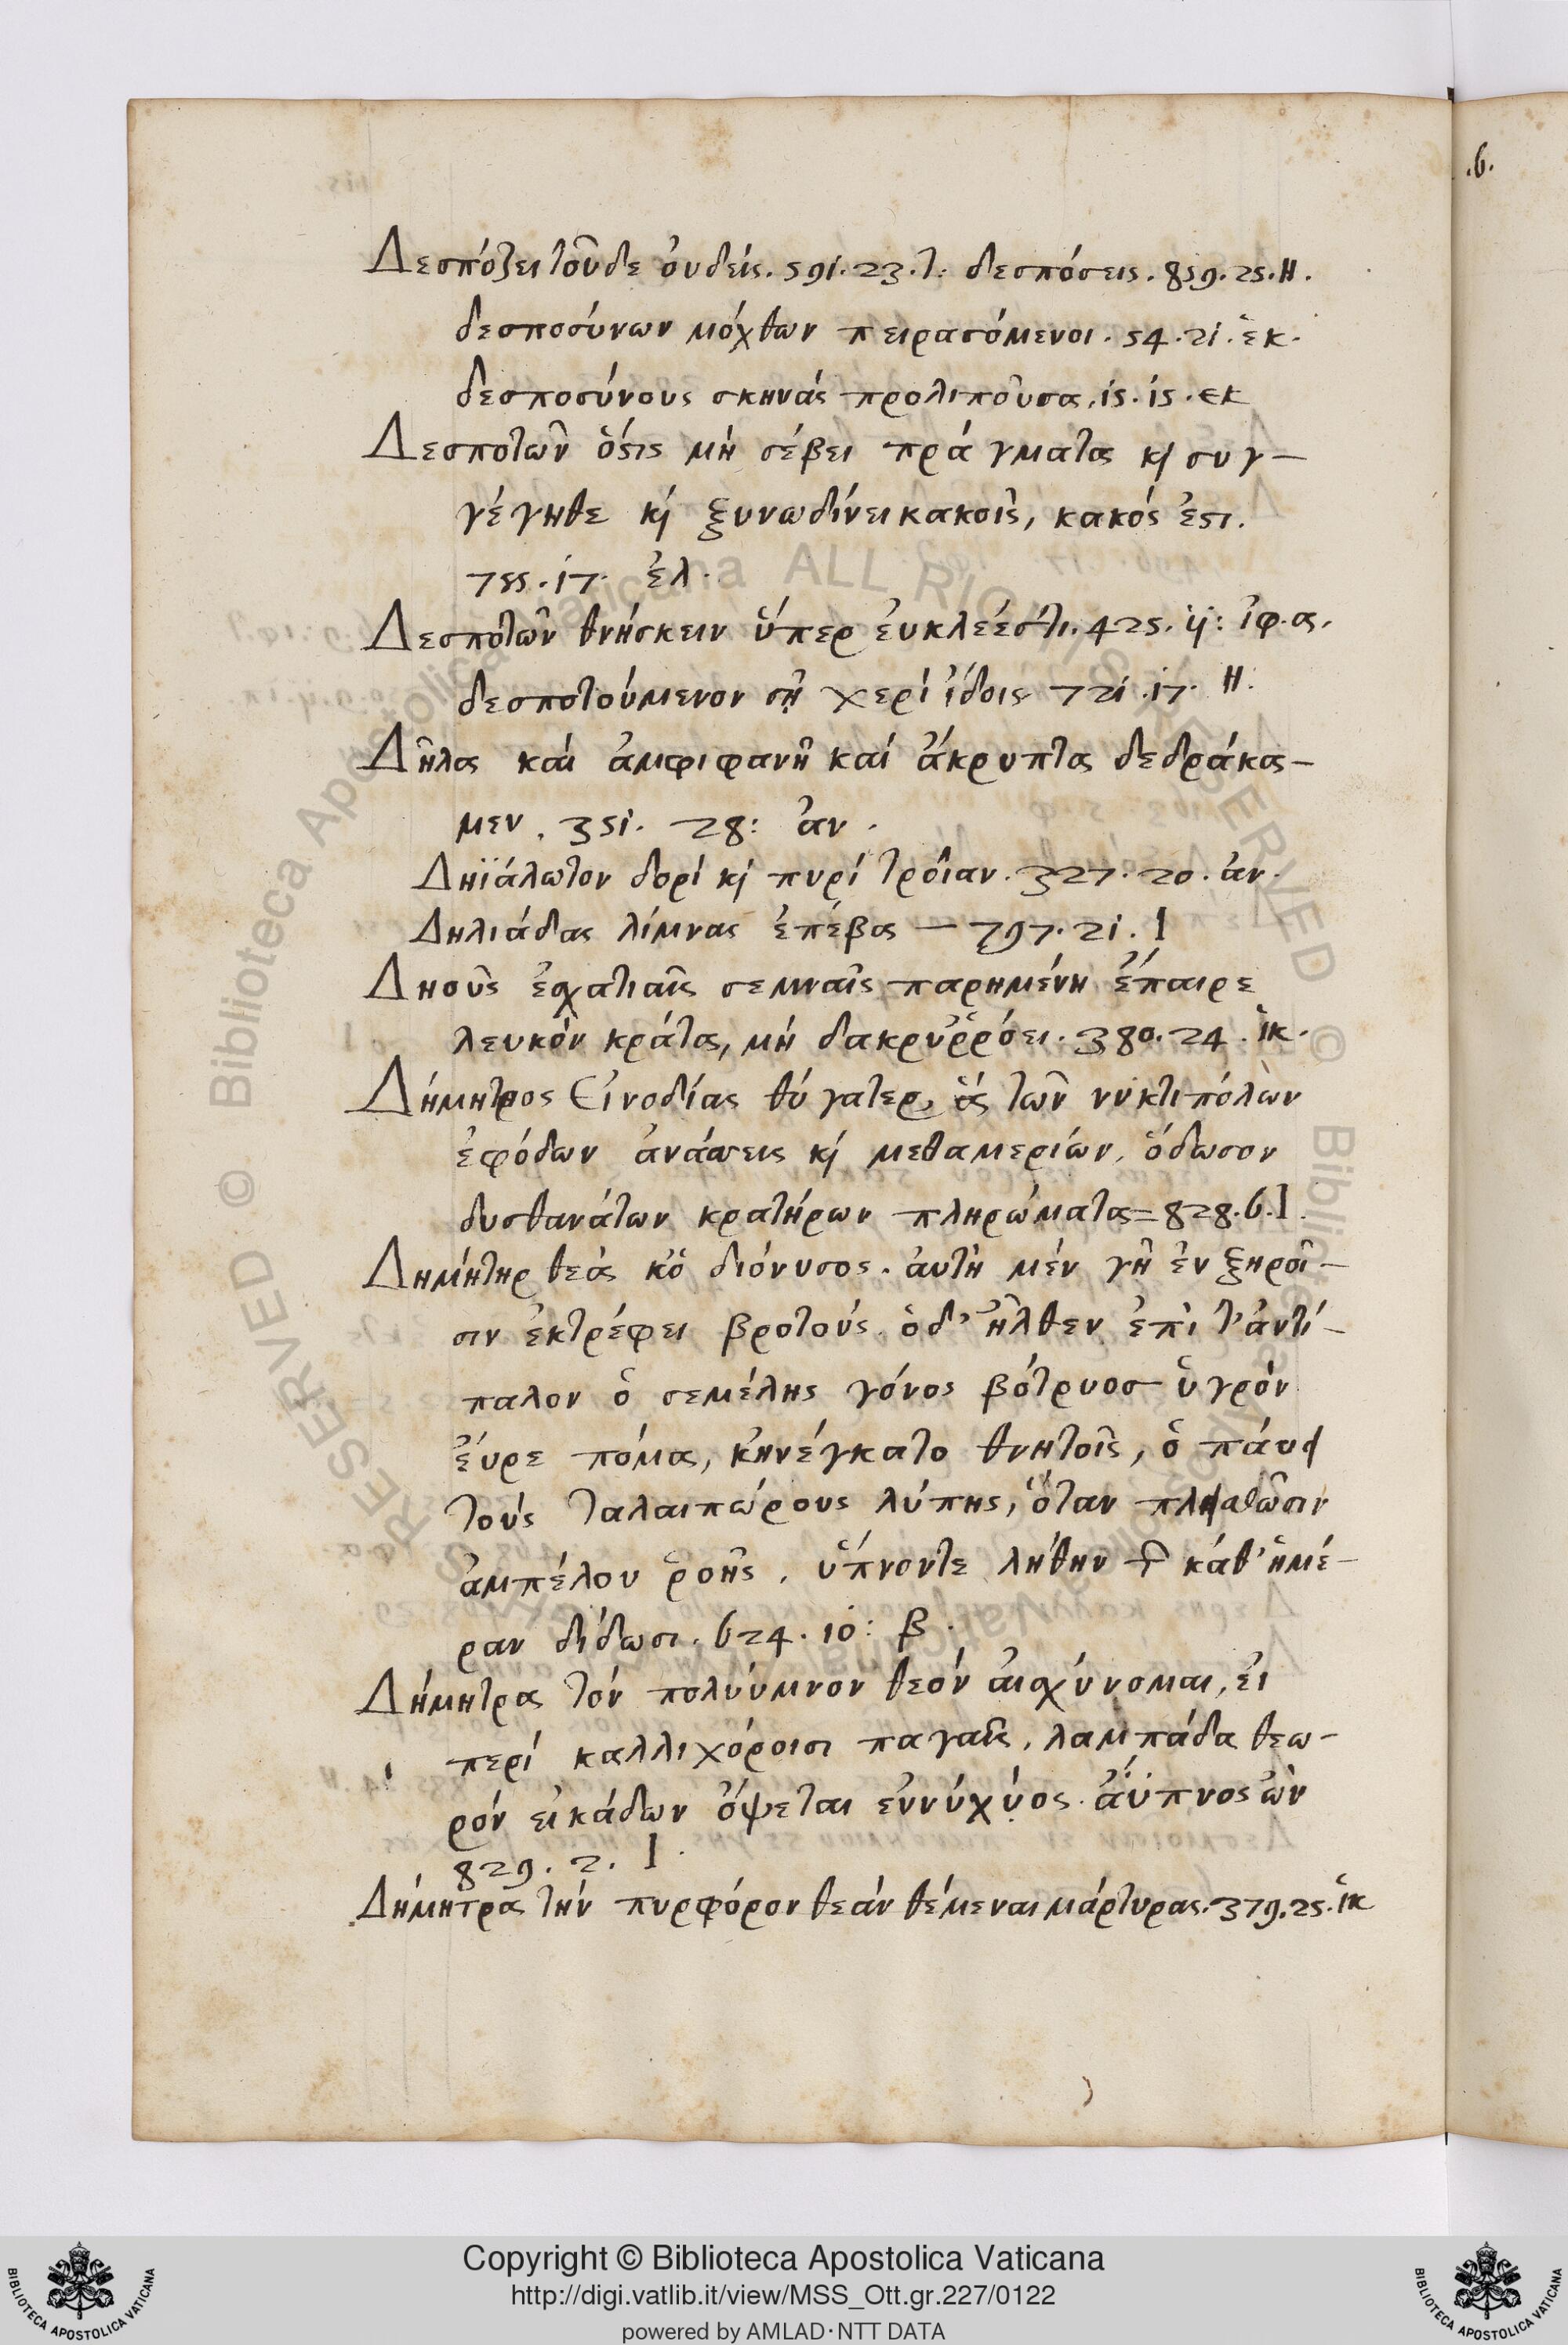 .6.
Δεσπόζει τοῦδε ὀυδείς. 591. 23. τ: δεσπόσεις. 859. 25. Η.
δεσποσύνων μόχθων πειρασόμενοι. 54. 21. ἑκ.
δεσποσύνους σκηνάς προλιποῦσα. 15. 15. εκ
Δεσποτῶν ὅςις μή σέβει πράγματα κ) συγ-
γέγηθε κ) ξυνωδίνει κακοῖς, κακός ἐςι.
755. 17. ἑλ.
Δεσποτῶν θνήσκειν ὕπερ ἐυκλεές. 425. ij: ἰφ. α.
δεσποτούμενον σῇ χερί ἴδοις 721. 17. Η.
Δῆλα καί ἀμφιφανῆ καί ἄκρυπτα δεδράκα-
μεν. 351. 28: ἀν.
Δηϊάλωτον δορί κ) πυρί τροίαν. 327. 20. ἀν.
Δηλιάδας λίμνας ἐπέβα - 797. 21. Ι
Δηοῦς ἐσχατιαῖς σεμναῖς παρημένη ἔπαιρε
λευκόν κράτα, μή δακρυῤῥόει. 380. 24. ἱκ.
Δήμητρος Εἰνοδίας θύγατερ, ἅς τῶν νυκτιπόλων
ἐφόδων ἀνάσσεις κ) μεθαμερίων, ὅδωσον
δυσθανάτων κρατήρων πληρώματα = 828. 6. Ι.
Δημήτηρ θεά κὁ διόνυσος. ἀυτή μέν γῆ ἐν ξηροῖ-
σιν ἐκτρέφει βροτούς. ὁδ' ἦλθεν ἐπὶ τ' ἀντί-
παλον ὁ σεμέλης γόνος βότρυοσ ὑγρόν
ἕυρε πόμα, κἠνέγκατο θνητοῖς, ὁ πάυει
τούς ταλαιπώρους λύπης, ὅταν πλησθῶσιν
ἀμπέλου ῥοῆς. ὕπνοντε λήθην τῶν κάθ' ἡμέ-
ραν δίδωσι. 624. 10: β.
Δήμητρα τόν πολύυμνον θεόν ἀισχύνομαι, ἐι
περί καλλιχόροισι παγαῖς, λαμπάδα θεω-
ρόν εἰκάδων ὄψεται ἐννύχιος. ἄϋπνος ὤν
829. 2. Ι.
Δήμητρα τήν πυρφόρον θεάν θέμεναι μάρτυρα. 379. 25. ἱκ
Copyright © Biblioteca Apostolica Vaticana
http://digi.vatlib.it/view/MSS_Ott.gr.227/0122
powered by AMLAD·NTT DATA